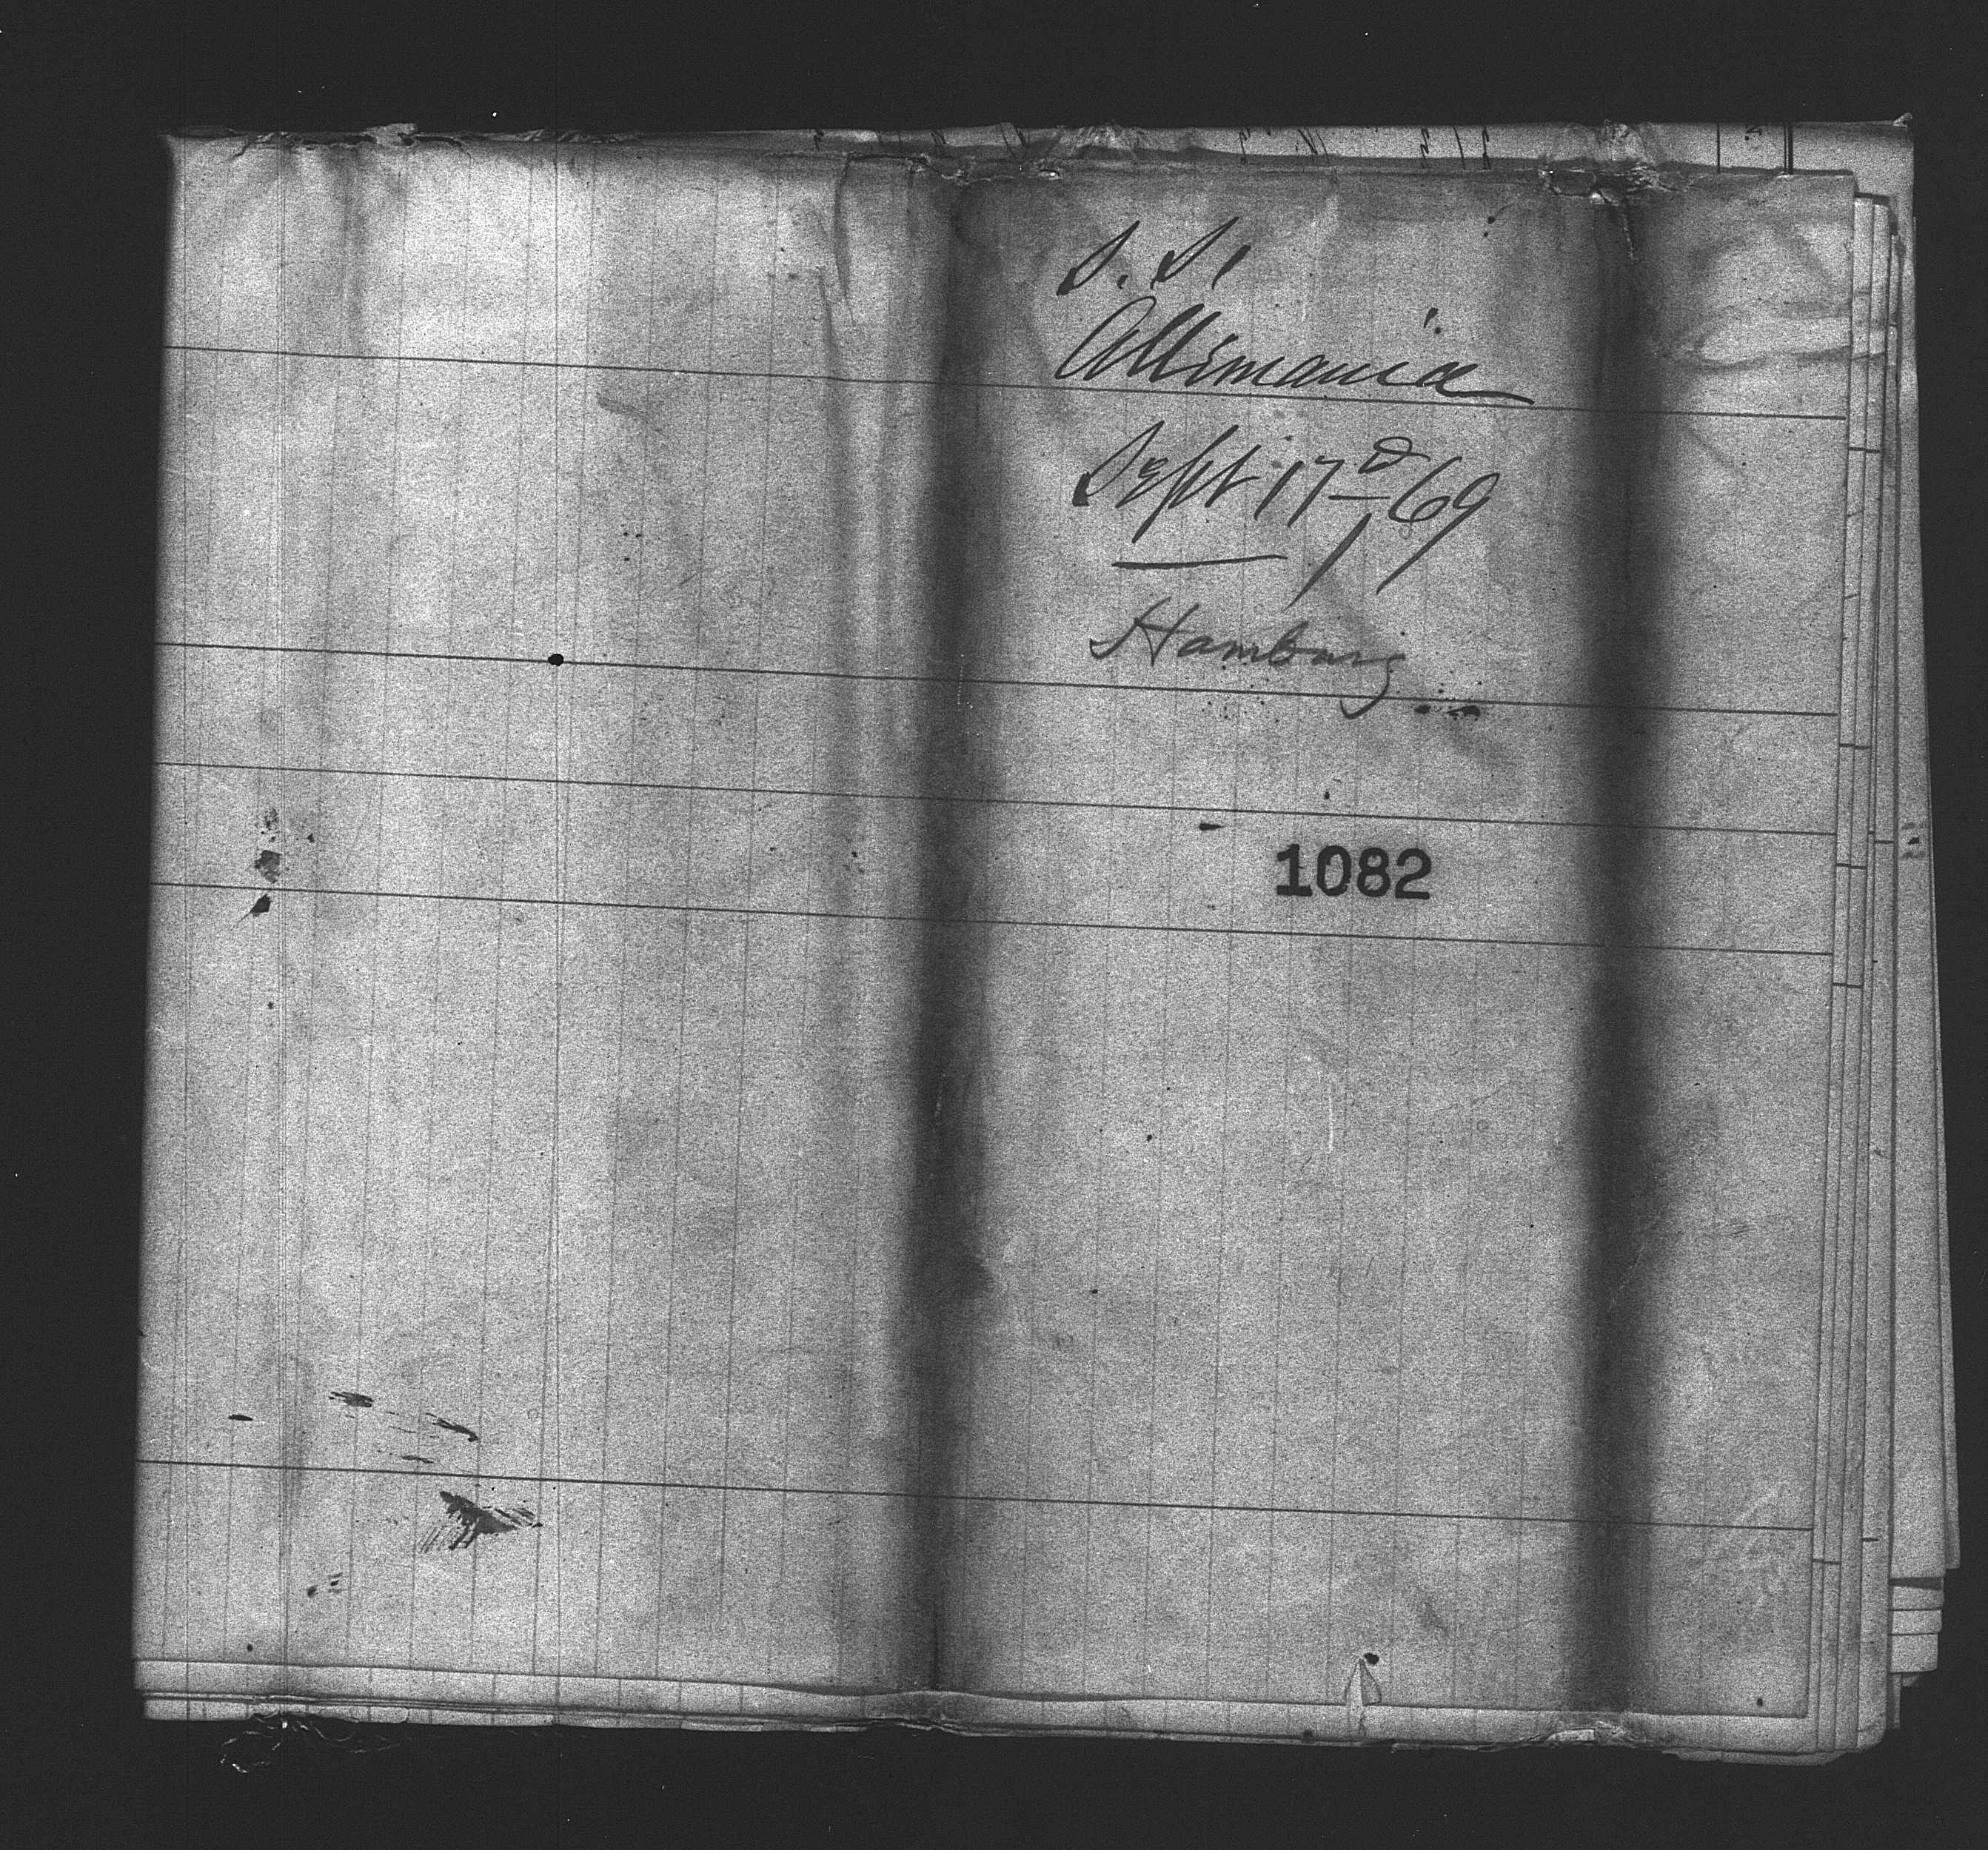 S. S.
Allimania
Sept 17th/69
Hamburg
1082